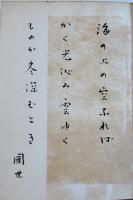 海の上の空なれば
かく光沁み雲ゆく
ものか冬深むとき
國世